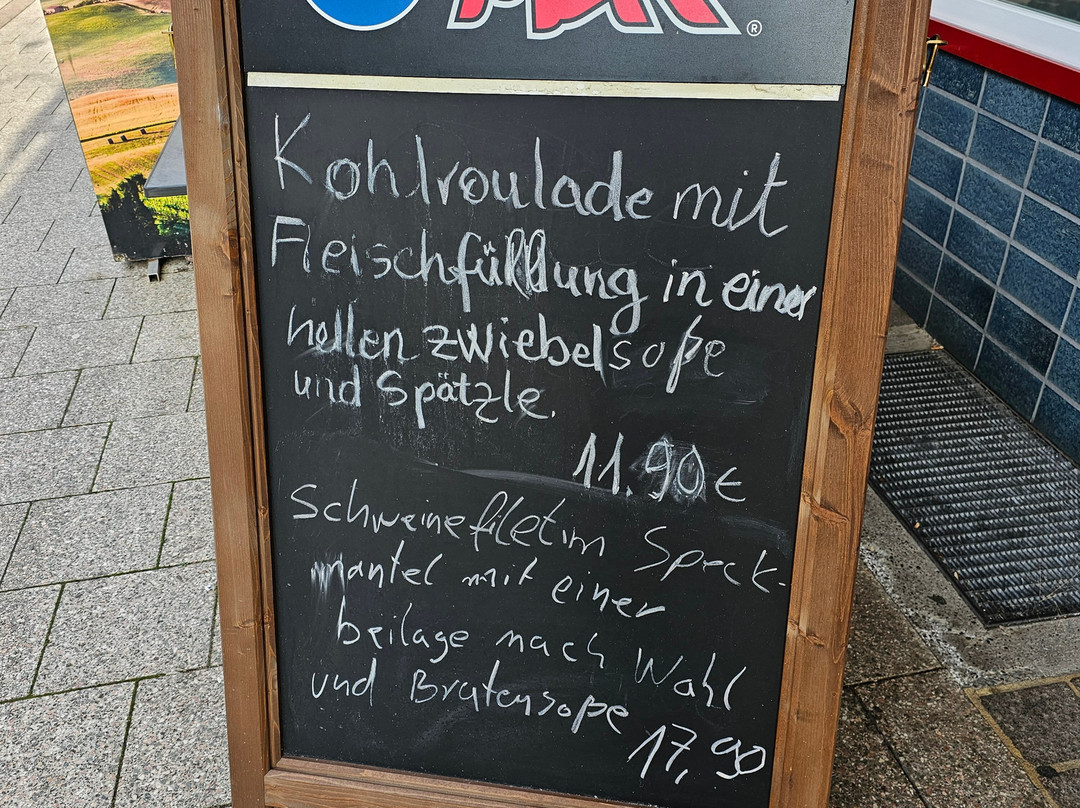 ®
Kohlroulade mit
Fleischfüllung in einer
hellen zwiebelsoße
und Spätzle.
11.90 €
Schweinefilet im Speck-
mantel mit einer
beilage nach Wahl
und Bratensoße
17,90